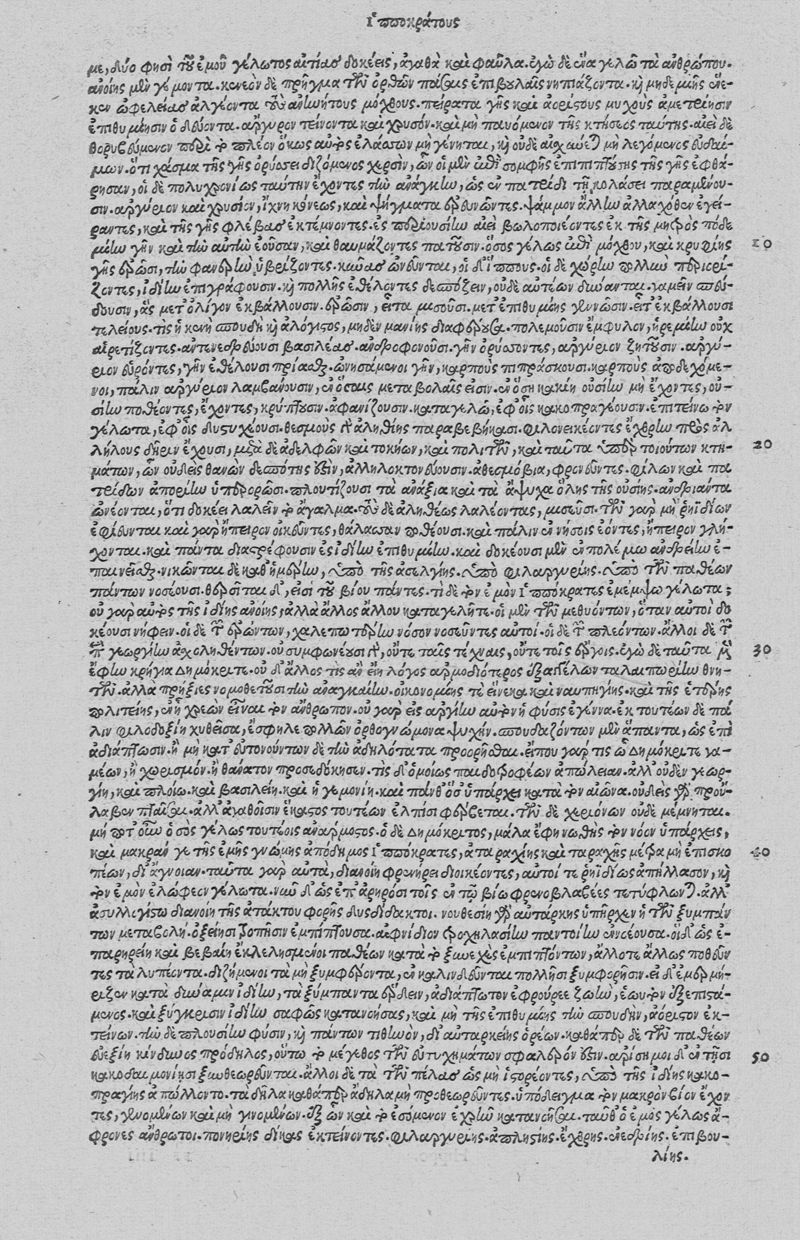 Ἱπποκράτους
με, δύο φησὶ τοῦ ἐμοῦ γέλωτος αἰτίας δοκέεις, ἀγαθὰ καὶ φαῦλα. ἐγὼ δὲ ἕνα γελῶ τὸν ἄνθρωπον.
ἀνοίης μὲν γέμοντα. κενεὸν δὲ πρήγματων ὀρθῶν παίζας ἐπιβουλαῖς νηπιάζοντα. καὶ μηδεμιῆς ἕνε-
κεν ὠφελείας ἀλγέοντα τοὺς ἀνωνήτους μόχθους. πείρατα γῆς καὶ ἀορίστους μυχοὺς ἀμετρίησιν
ἐπιθυμίησιν ὁδεύοντα. ἄργυρον τείνοντα καὶ χρυσὸν. καὶ μὴ παυόμενον τῆς κτήσεος ταύτης. αἰεὶ δὲ
θορυβεύμενον περὶ τὸ πλέον ὅκως αὐτὸς ἐλάσσων μὴ γένηται, καὶ οὐδὲ αἰσχύνεται μὴ λεγόμενος εὐδαί-
μων. ὅτι χάσμα τῆς γῆς ὀρύσσει διζόμενος χερσὶν, ὧν οἱ μὲν ὑπὸ σομφῆς ἐπιπιπτούσης τῆς γῆς ἐφθά-
ρησαν, οἱ δὲ πολυχρονίως ταύτην ἔχοντες τὴν ἀνάγκην, ὡς ἐν πατρίδι τῇ κολάσει παραμένου-
σιν. ἀργύριον καὶ χρυσίον, ἴχνη κόνεως, καὶ ψήγματα ἐρευνῶντες. ψάμμον ἄλλην ἀλλαχόθεν ἐγεί-
ραντες, καὶ τῆς γῆς φλέβας ἐκτέμνοντες. ἐς περιουσίην αἰεὶ βωλοποιέοντες ἐκ τῆς μητρὸς ποδε
μένην γῆν καὶ τὴν αὐτὴν ἐοῦσαν, καὶ θαυμάζοντες πατοῦσιν. ὅσος γέλως ἐπὶ μόχθου, καὶ κρυφίης
γῆς ἐρῶσι, τὴν φανερὴν ὑβρίζοντες. κύνας ὠνεῦνται, οἱ δ' ἵππους. οἱ δὲ χώρην πολλὴν περιορί-
ζοντες, ἰδίην ἐπιγράφουσιν. καὶ πολλῆς ἐθέλοντες δεσπόζειν, οὐδὲ αὐτέων δύνανται. γαμεῖν σπεύ-
δουσιν, ἃς μετ' ὀλίγον ἐκβάλλουσιν. ἐρῶσιν, εἶτα μισοῦσι. μετ' ἐπιθυμίης γεννῶσιν. εἶτ' ἐκβάλλουσι
τελείους. τίς ἡ κενὴ σπουδὴ καὶ ἀλόγιστος, μηδὲν μανίης διαφέρουσα. πολεμοῦσιν ἔμφυλον, ἠρεμέην οὐχ
αἱρετίζοντες. ἀντενεδρεύουσι βασιλέας. ἀνδροφονοῦσι. γῆν ὀρύσσοντες, ἀργύριον ζητοῦσιν. ἀργύ-
ριον εὑρόντες, γῆν ἐθέλουσι πρίασθαι. ὠνησάμενοι γῆν, καρποὺς πιπράσκουσι. καρποὺς ἀποδεχόμε-
νοι, πάλιν ἀργύριον λαμβάνουσιν, ἐν ὅσαις μεταβολαῖς εἰσιν. ἐν ὅσῃ κακίῃ οὐσίην μὴ ἔχοντες, οὐ-
σίην ποθέοντες, ἔχοντες, κρύπτουσιν. ἀφανίζουσιν. καταγελῶ, ἐφ' οἷς κακοπραγέουσιν. ἐπιτείνω τὸν
γέλωτα, ἐφ' οἷς δυστυχέουσι. θεσμοὺς γὰρ ἀληθίης παραβεβήκασι. φιλονεικέοντες ἔχθρην πρὸς ἀλ
λήλους δῆριν ἔχουσι, μετὰ δὲ ἀδελφῶν καὶ τοκήων, καὶ πολιτῶν, καὶ ταῦτα ὑπὲρ τοιούτων κτη-
μάτων, ὧν οὐδεὶς θανὼν δεσπότης ἐστὶν, ἀλληλοκτονεῦσιν. ἀθεσμόβια, φρονεῦντες. φίλων καὶ πα
τρίδων ἀπορίην ὑπερορῶσι. πλουτίζουσι τὰ ἀνάξια καὶ τὰ ἄψυχα. ὅλης τῆς οὐσίης ἀνδριάντα
ὠνέονται, ὅτι δοκέει λαλεῖν τὸ ἄγαλμα. τοὺς δὲ ἀληθέως λαλέοντας, μισεῦσι. τῶν γὰρ μὴ ῥηϊδίων
ἐφίενται καὶ γὰρ ἤπειρον οἰκεῦντες, θάλασσαν ποθέουσι. καὶ πάλιν ἐν νήσοις ἐόντες, ἤπειρον γλί-
χονται. καὶ πάντα διαστρέφουσιν ἐς ἰδίην ἐπιθυμίην. καὶ δοκέουσι μὲν ἐν πολέμῳ ἀνδρείην ἐ-
παινέεσθαι. νικῶνται δὲ καθ' ἡμέρην, ὑπὸ τῆς ἀσελγίης. ὑπὸ φιλαργυρίης. ὑπὸ τῶν παθέων
πάντων νοσέουσι. θερσῖται δ', εἰσὶ τοῦ βίου πάντες. τί δὲ τὸν ἐμὸν Ἱππόκρατες ἐμέμψω γέλωτα;
οὐ γὰρ αὐτὸς τῆς ἰδίης ἀνοίης, ἀλλὰ ἄλλος ἄλλου καταγελῆτε. οἱ μὲν τῶν μεθυόντων, ὅταν αὐτοὶ δο
κέουσι νήφειν. οἱ δὲ τῶν ἐρώντων, χαλεπωτέρην νόσον νοσεῦντες αὐτοί. οἱ δὲ τῶν πλεόντων. ἄλλοι δὲ τῶν
περὶ γεωργίην ἀσχοληθέντων. οὐ συμφωνέουσι γὰρ, οὔτε ταῖς τέχναις, οὔτε τοῖς ἔργοις. ἐγὼ δὲ ταῦτα μὲν
ἔφην κρήγυα Δημόκριτε. οὐδ' ἄλλος τις ἂν εἴη λόγος ἁρμοδιώτερος ἐξαγγέλων ταλαιπωρίην θνη-
τῶν. ἀλλὰ πρήξιες νομοθετοῦσι τὴν ἀναγκαίην. οἰκονομίης τε εἵνεκα. καὶ ναυπηγίης. καὶ τῆς ἑτέρης
πολιτείης, ἐν ᾗ χρεὼν εἶναι τὸν ἄνθρωπον. οὐ γὰρ εἰς ἀργίην αὐτὸν ἡ φύσις ἐγέννα. ἐκ τουτέων δὲ πά
λιν φιλοδοξίη χυθεῖσα, ἔσφηλε πολλῶν ὀρθογνώμονα ψυχὴν. σπουδαζόντων μὲν ἅπαντα, ὡς ἐπὶ
ἀδιάπτωσιν. ἢ μὴ κατευτονούντων δὲ τὴν ἀδηλότατα προορῆσθαι. εἶπον γάρ τις ὦ Δημόκριτε γα-
μέων, ἢ χωρισμόν. ἢ θάνατον προσεδόκησεν. τίς δ' ὁμοίως παιδοφοφέων ἀπώλειαν. ἀλλ' οὐδὲν γεωρ-
γίη, καὶ πλοίῳ. καὶ βασιλείη. καὶ ἡγεμονίη. καὶ πάνθ' ὅσ' ὑπάρχει κατὰ τὸν αἰῶνα. οὐδεὶς γὰρ προὔ-
λαβεν πταῖσαι. ἀλλ' ἀγαθῇσιν ἕκαστος τουτέων ἐλπίσι φέρεται. τῶν δὲ χειρόνων οὐδὲ μέμνηται.
μή ποτ' οὖν ὁ σὸς γέλως τουτέοις ἀνάρμοστος. ὁ δὲ Δημόκριτος, μάλα ἔφη νωθὴς τὸν νόον ὑπάρχεις,
καὶ μακράν γε τῆς ἐμῆς γνώμης ἀπόδημος Ἱππόκρατες, ἀταραξίης καὶ ταραχῆς μέτρα μὴ ἐπισκο
πέων, δι' ἄγνοιαν. ταῦτα γὰρ αὐτὰ, διανοίῃ φρενήρει διοικέοντες, αὐτοί τε ῥηϊδίως ἀπήλλασον, καὶ
τὸν ἐμὸν ἐλώφεον γέλωτα. νῦν δ' ὡς ἐπ' ἀρηρόσι τοῖς ἐν τῷ βίῳ φρενοβλαβέες τετύφλωνται. ἀλλ'
ἀσυλλογίστῳ διανοίῃ τῆς ἀτάκτου φορῆς δυσδίδακτοι. νουθεσίη γὰρ αὐτάρκης ὑπῆρχεν ἡ τῶν ξυμπάν
των μεταβολὴ. ὀξείησι τροπῇσιν ἐμπίπτουσα. αἰφνίδιον τροχηλασίην παντοίην ἐννέουσα. οἱ δ' ὡς ἐ-
παρηρείῃ καὶ βεβαίῃ ἐκλελησμένοι παθέων κατὰ τὸ ξυνεχὲς ἐμπιπτόντων, ἄλλοτε ἄλλως ποθεῦν
τες τὰ λυπέοντα. διζήμενοι τὰ μὴ ξυμφέροντα, ἐν καλινδεῦνται πολλῇσι ξυμφορῇσιν. εἰ δ' ἐμερμή-
ριζον κατὰ δύναμιν ἰδίην, τὰ ξύμπαντα ἔρδειν, ἀδιάπτωτον ἐφρούρεε ζωὴν, ἑωυτὸν ἐξεπιστά-
μενος. καὶ ξύγκρισιν ἰδίην σαφῶς κατανοήσας, καὶ μὴ τῆς ἐπιθυμίης τὴν σπουδὴν, ἀόριστον ἐκ-
τείνων. τὴν δὲ πλουσίην φύσιν, καὶ πάντων τιθηνὸν, δι' αὐταρκείης ὁρέων. καθάπερ δὲ τῶν παθέων
εὐεξίη κίνδυνος πρόδηλος, οὕτω τὸ μέγεθος τῶν εὐτυχημάτων σφαλερόν ἐστιν. ἀρίσημοι δ' ἐν τῇσι
κακοδαιμονίησι ξυνθεωρεῦνται. ἄλλοι δὲ τὰ τῶν πέλας ὡς μὴ ἱστορέοντες, ὑπὸ τῆς ἰδίης κακο-
πραγίης ἀπώλλοντο. τὰ δῆλα καθάπερ ἄδηλα μὴ προθεωρεῦντες. ὑπόδειγμα τὸν μακρὸν βίον ἔχον
τες, γενομένων καὶ μὴ γινομένων. ἐξ ὧν καὶ τὸ ἐσόμενον ἐχρῆν κατανοῆσαι. ταῦθ' ὁ ἐμὸς γέλως ἄ-
φρονες ἄνθρωποι. πονηρίης δίκας ἐκτείνοντες. φιλαργυρίης. ἀπληστίης. ἔχθρης. ἐνέδρης. ἐπιβου-
λίης.
10
20
30
40
50